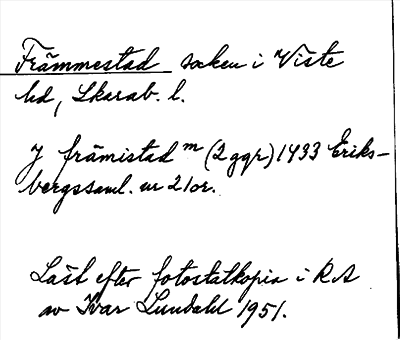 Främmestad socken i Viste
hd, Skarab. l.
J främistad m (2 ggr) 1433 Eriks-
bergssaml. nr 21 or.
Läst efter fotostatkopia i RA
av Ivar Lundahl 1951.